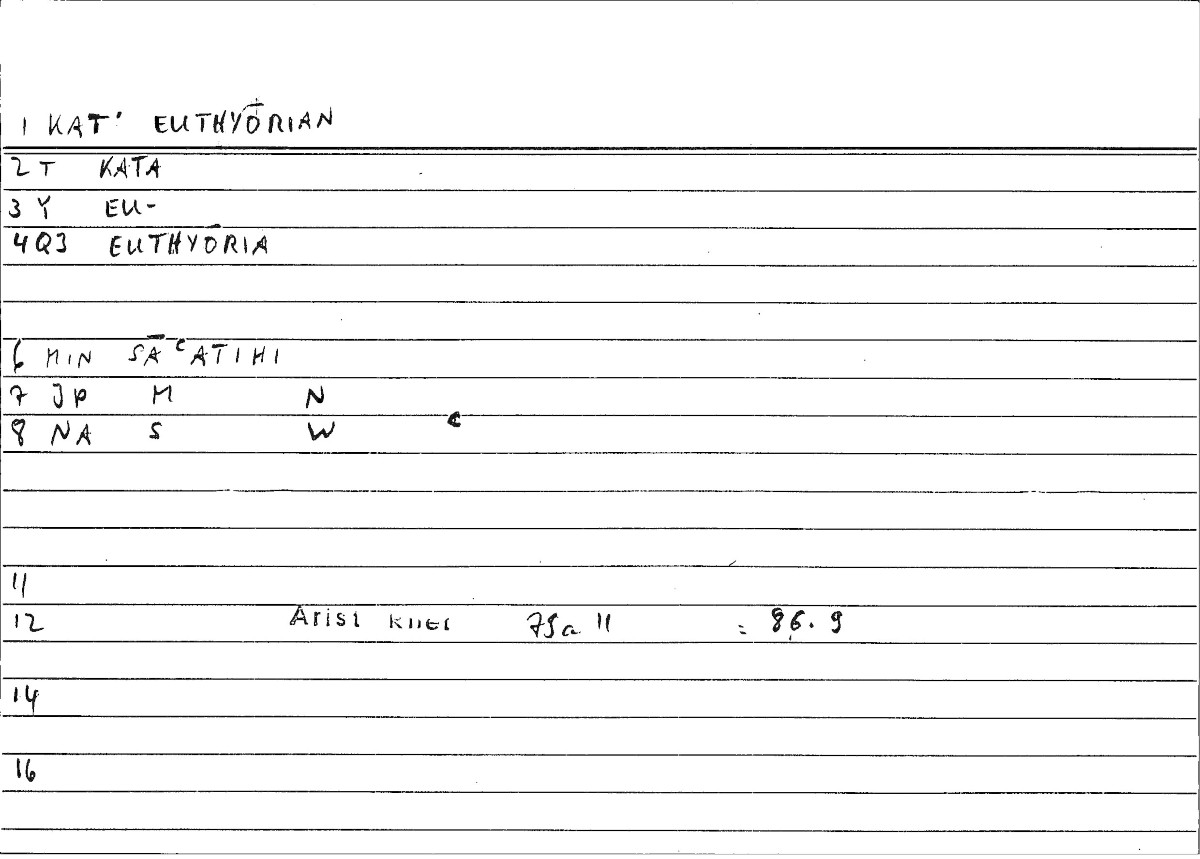 1 KAT' EUTHYŌRIAN
2 T KATA
3 Y EU-
4 Q3 EUTHYŌRIA
6 MIN SĀʿATIHI
7 JP M N
8 NA S W ʿ
11
12 Arist Rhet 75a 11 = 86.9
14
16